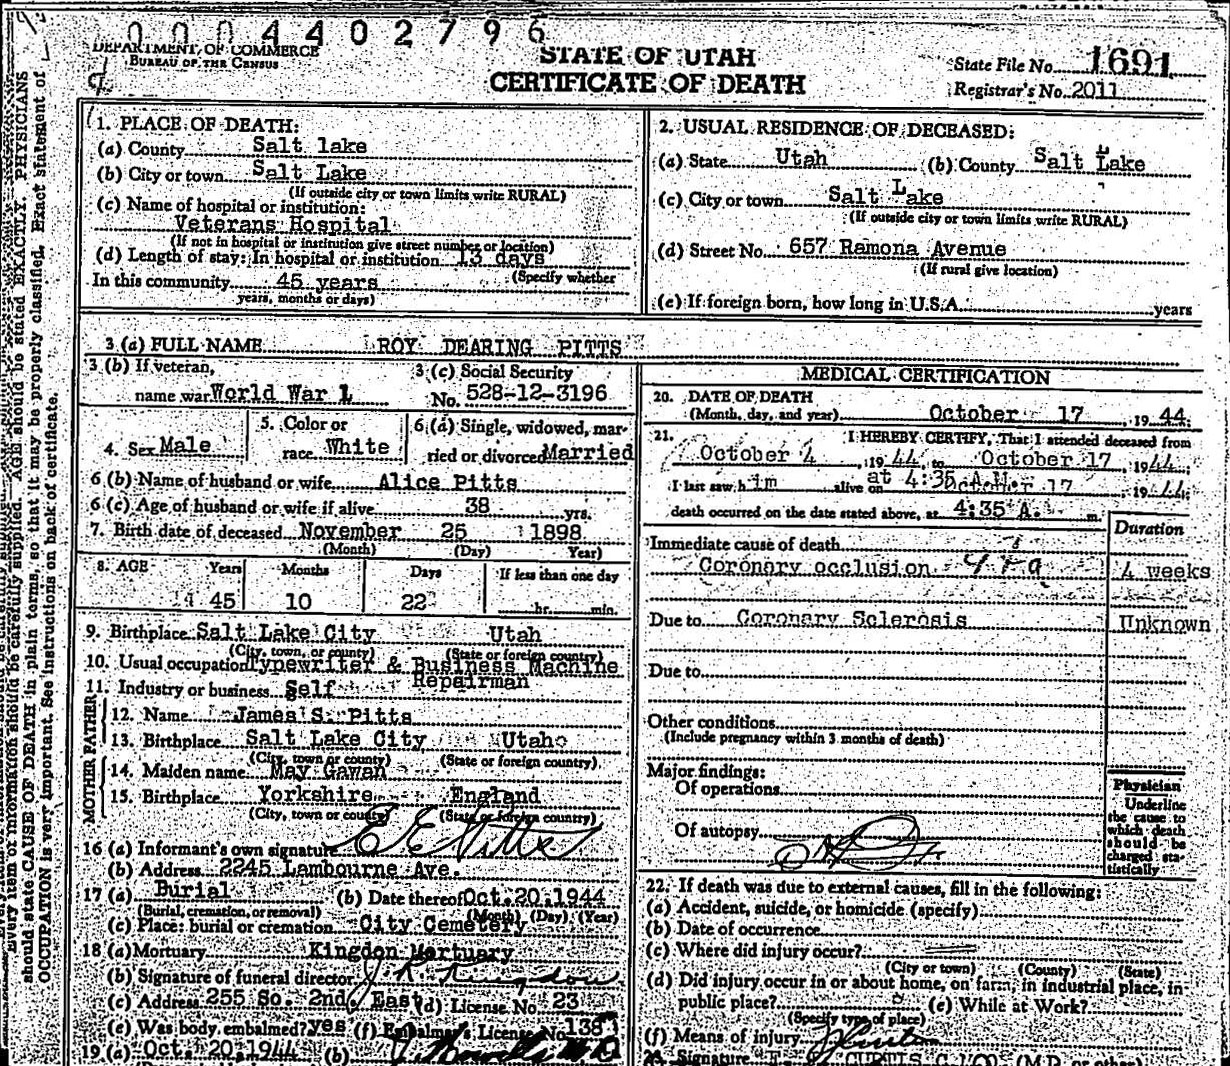 0004402796
DEPARTMENT OF COMMERCE
BUREAU OF THE CENSUS
STATE OF UTAH
CERTIFICATE OF DEATH
State File No. 1691
Registrar's No. 2011
Every item of information should be carefully supplied. AGE should be stated EXACTLY. PHYSICIANS
should state CAUSE OF DEATH in plain terms, so that it may be properly classified. Exact statement of
OCCUPATION is very important. See instructions on back of certificate.
1. PLACE OF DEATH:
(a) County Salt lake
(b) City or town Salt Lake
(If outside city or town limits write RURAL)
(c) Name of hospital or institution:
Veterans Hospital
(If not in hospital or institution give street number or location)
(d) Length of stay: In hospital or institution 13 days
(Specify whether
In this community 45 years
years, months or days)
2. USUAL RESIDENCE OF DECEASED:
(a) State Utah (b) County Salt Lake
(c) City or town Salt Lake
(If outside city or town limits write RURAL)
(d) Street No. 657 Ramona Avenue
(If rural give location)
(e) If foreign born, how long in U.S.A. years
3 (a) FULL NAME ROY DEARING PITTS
3 (b) If veteran,
name war World War 1
3 (c) Social Security
No. 528-12-3196
4. Sex Male
5. Color or
race White
6 (a) Single, widowed, mar-
ried or divorced Married
6 (b) Name of husband or wife Alice Pitts
6 (c) Age of husband or wife if alive 38 yrs.
7. Birth date of deceased November 25 1898
(Month) (Day) Year)
8. AGE Years Months Days If less than one day
45 10 22 hr. min.
9. Birthplace Salt Lake City Utah
(City, town, or county) (State or foreign country)
10. Usual occupation Typewriter & Business Machine
Repairman
11. Industry or business Self
FATHER
12. Name James S. Pitts
13. Birthplace Salt Lake City Utah
(City, town or county) (State or foreign country)
MOTHER
14. Maiden name May Gawan
15. Birthplace Yorkshire England
(City, town or county) (State or foreign country)
16 (a) Informant's own signature E E Pitts
(b) Address 2245 Lambourne Ave.
17 (a) Burial (b) Date thereof Oct. 20, 1944
(Burial, cremation, or removal) (Month) (Day) (Year)
(c) Place: burial or cremation City Cemetery
18 (a) Mortuary Kingdon Mortuary
(b) Signature of funeral director
(c) Address 255 So. 2nd East (d) License No. 23
(e) Was body embalmed? yes (f) Embalmer's License No. 138
19 (a) Oct. 20, 1944 (b)
MEDICAL CERTIFICATION
20. DATE OF DEATH
(Month, day, and year) October 17, 19 44
21. I HEREBY CERTIFY, That I attended deceased from
October 4, 19 44 to October 17 19 44
I last saw him alive on October 17 19 44
at 4:35 A.M.
death occurred on the date stated above, at 4:35 A. m.
Duration
Immediate cause of death
Coronary occlusion 4 weeks
Due to Coronary Sclerosis Unknown
Due to
Other conditions
(Include pregnancy within 3 months of death)
Major findings:
Of operations
Of autopsy
Physician
Underline
the cause to
which death
should be
charged sta-
tistically
22. If death was due to external causes, fill in the following:
(a) Accident, suicide, or homicide (specify)
(b) Date of occurrence
(c) Where did injury occur?
(City or town) (County) (State)
(d) Did injury occur in or about home, on farm, in industrial place, in
public place? (e) While at Work?
(Specify type of place)
(f) Means of injury
23. Signature (M.D. or other)